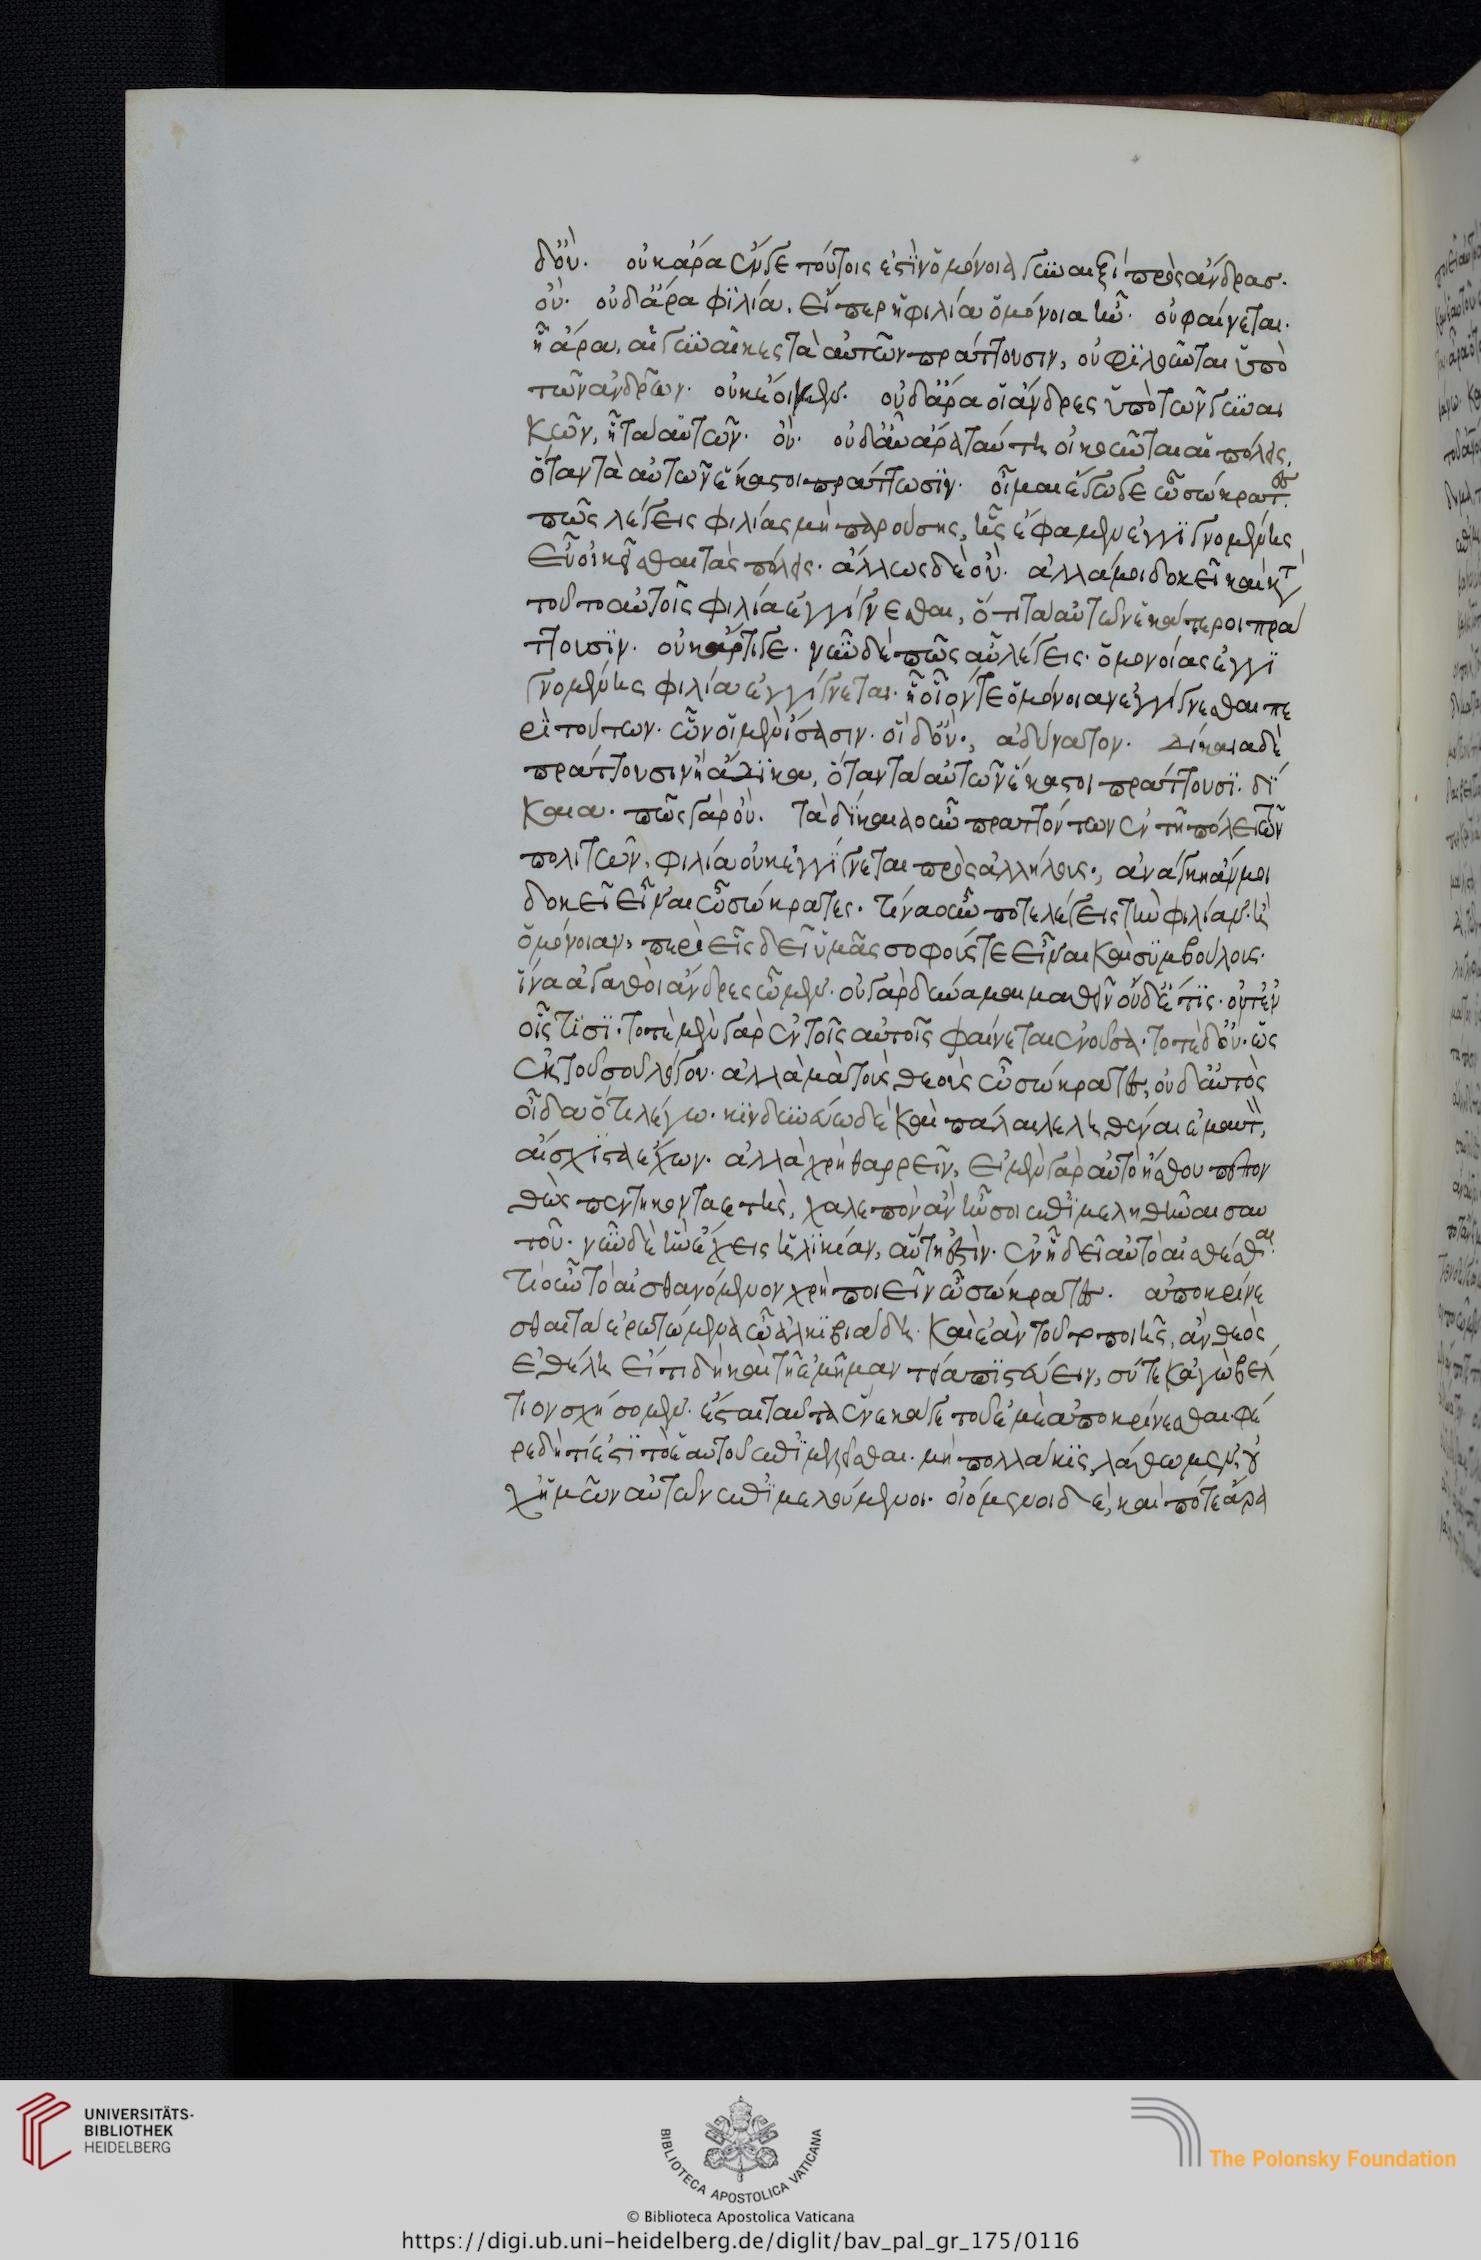 δ' οὔ. οὐκ ἄρα ἔν γε τούτοις ἐστὶν ὁμόνοια γυναιξὶ πρὸς ἄνδρασ.
οὔ. οὐδ' ἄρα φιλία, εἴπερ ἡ φιλία ὁμόνοια ἦν. οὐ φαίνεται.
ἧ ἄρα, αἱ γυναῖκες τὰ αὑτῶν πράττουσιν, οὐ φιλοῦνται ὑπὸ
τῶν ἀνδρῶν. οὐκ ἔοικεν. οὐδ' ἄρα οἱ ἄνδρες ὑπὸ τῶν γυναι
κῶν, ἧ τὰ αὑτῶν. οὔ. οὐδ' εὖ ἄρα ταύτη οἰκοῦνται αἱ πόλεις,
ὅταν τὰ αὑτῶν ἕκαστοι πράττωσιν. οἶμαι ἔγωγε ὦ σώκρατες.
πῶς λέγεις φιλίας μὴ παρούσης, ἧς ἔφαμεν ἐγγιγνομένης
εὖ οἰκεῖσθαι τὰς πόλεις. ἄλλως δὲ οὔ. ἀλλά μοι δοκεῖ καὶ κατὰ
τοῦτο αὐτοῖς φιλία ἐγγίγνεσθαι, ὅτι τὰ αὑτῶν ἑκάτεροι πρά
ττουσιν. οὐκ ἄρτι γε. νῦν δὲ πῶς αὖ λέγεις. ὁμονοίας ἐγγι
γνομένης φιλία ἐγγίγνεται. ἢ οἷόν τε ὁμόνοιαν ἐγγίγνεσθαι πε
ρὶ τούτων. ὧν οἱ μὲν ἴσασιν. οἱ δ' οὔ·, ἀδύνατον. δίκαια δὲ
πράττουσιν ἢ ἄδικα, ὅταν τὰ αὑτῶν ἕκαστοι πράττουσι. δί
καια. πῶς γὰρ οὔ. τὰ δίκαια οὖν πραττόντων ἐν τῇ πόλει τῶν
πολιτῶν, φιλία οὐκ ἐγγίγνεται πρὸς ἀλλήλους·, ἀνάγκη ἄν μοι
δοκεῖ εἶναι ὦ σώκρατες. τίνα οὖν ποτε λέγεις τὴν φιλίαν. ἢ
ὁμόνοιαν, περὶ εἷς δεῖ ὑμᾶς σοφούς τε εἶναι καὶ συμβούλους.
ἵνα ἀγαθοὶ ἄνδρες ὦμεν. οὐ γὰρ δύναμαι μαθεῖν οὐδέ τις. οὔτ' ἐν
οἷς τισί. τοτὲ μὲν γὰρ ἐν τοῖς αὐτοῖς φαίνεται ἐνοῦσα. τοτὲ δ' οὔ. ὡς
ἐκ τοῦ σοῦ λόγου. ἀλλὰ μὰ τοὺς θεοὺς ὦ σώκρατες, οὐδ' αὐτὸς
οἶδα ὅτι λέγω. κινδυνεύω δὲ καὶ πάλαι λεληθέναι ἐμαυτὸν,
αἴσχιστα ἔχων. ἀλλὰ χρὴ θαρρεῖν, εἰ μὲν γὰρ αὐτὸ ἤσθου πεπον
θὼς πεντηκονταετὴς, χαλεπὸν ἂν ἦν σοι ἐπιμεληθῆναι σαυ
τοῦ. νῦν δὲ ἣν ἔχεις ἡλικίαν, αὕτη ἐστὶν. ἐν ᾗ δεῖ αὐτὸ αἰσθέσθαι.
τί οὖν τὸ αἰσθανόμενον χρὴ ποιεῖν ὦ σώκρατες. ἀποκρίνε
σθαι τὰ ἐρωτώμενα ὦ ἀλκιβιάδη. καὶ ἐὰν τοῦτο ποιῇς, ἂν θεὸς
ἐθέλῃ εἴ τι δὴ καὶ τῇ ἐμῇ μαντείᾳ πιστεύειν, σύ τε κἀγὼ βέλ
τιον σχήσομεν. ἔσται ταῦτα ἕνεκά γε τοῦ ἐμὲ ἀποκρίνεσθαι. φέ
ρε δὴ τί ἐστι τὸ ἑαυτοῦ ἐπιμελεῖσθαι. μὴ πολλάκις λάθωμεν, οὐ
χ ἡμῶν αὐτῶν ἐπιμελούμενοι. οἰόμενοι δέ, καὶ πότε ἄρα
UNIVERSITÄTS-
BIBLIOTHEK
HEIDELBERG
BIBLIOTECA APOSTOLICA VATICANA
The Polonsky Foundation
© Biblioteca Apostolica Vaticana
https://digi.ub.uni-heidelberg.de/diglit/bav_pal_gr_175/0116